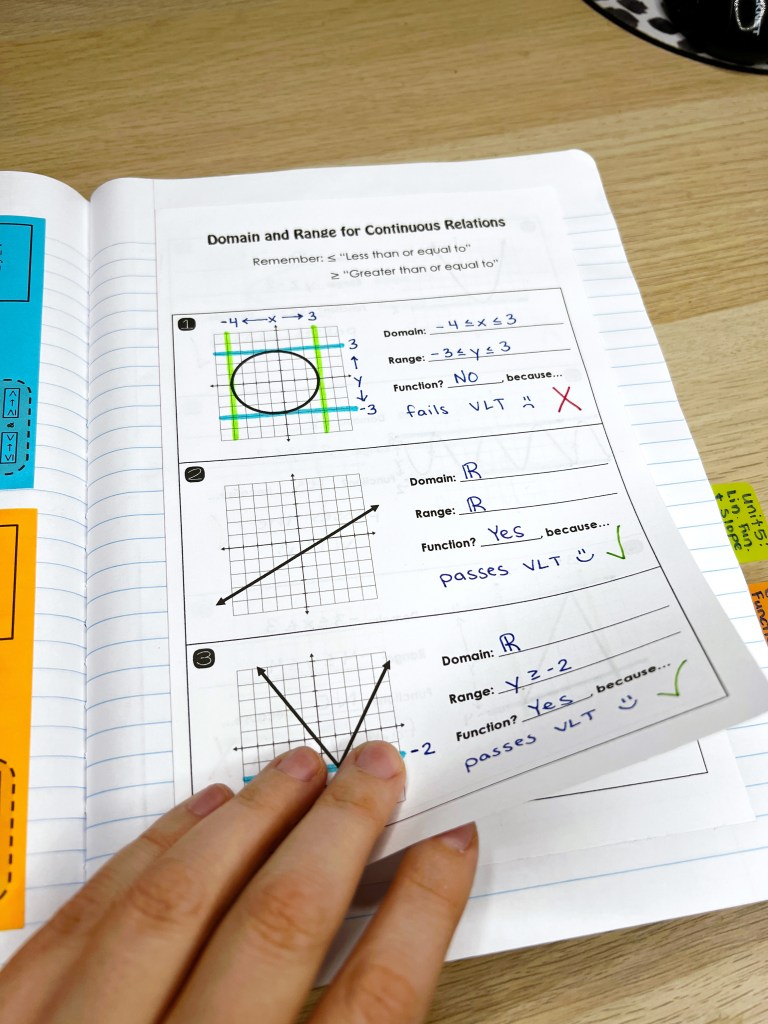 Domain and Range for Continuous Relations
Remember: ≤ "Less than or equal to"
≥ "Greater than or equal to"
1
-4 ← x → 3
3
↑
y
↓
-3
Domain: -4 ≤ x ≤ 3
Range: -3 ≤ y ≤ 3
Function? NO, because...
fails VLT ☹ X
2
Domain: ℝ
Range: ℝ
Function? Yes, because...
passes VLT ☺ ✓
3
-2
Domain: ℝ
Range: y ≥ -2
Function? Yes, because...
passes VLT ☺ ✓
Unit 5:
Lin. Fun.
+ Slope
&